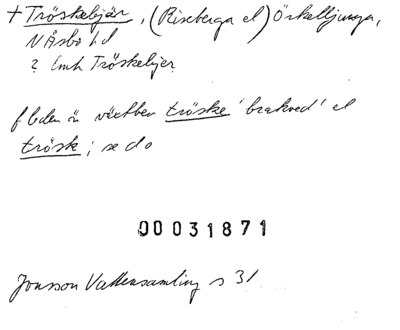 + Tröskebjär, (Riseberga el) Örkelljunga,
N Åsbo hd
? Tröskebjer
f leden är växtben tröske 'brakved' el
trösk; se do
00031871
Jonsson Vattensamling s 31